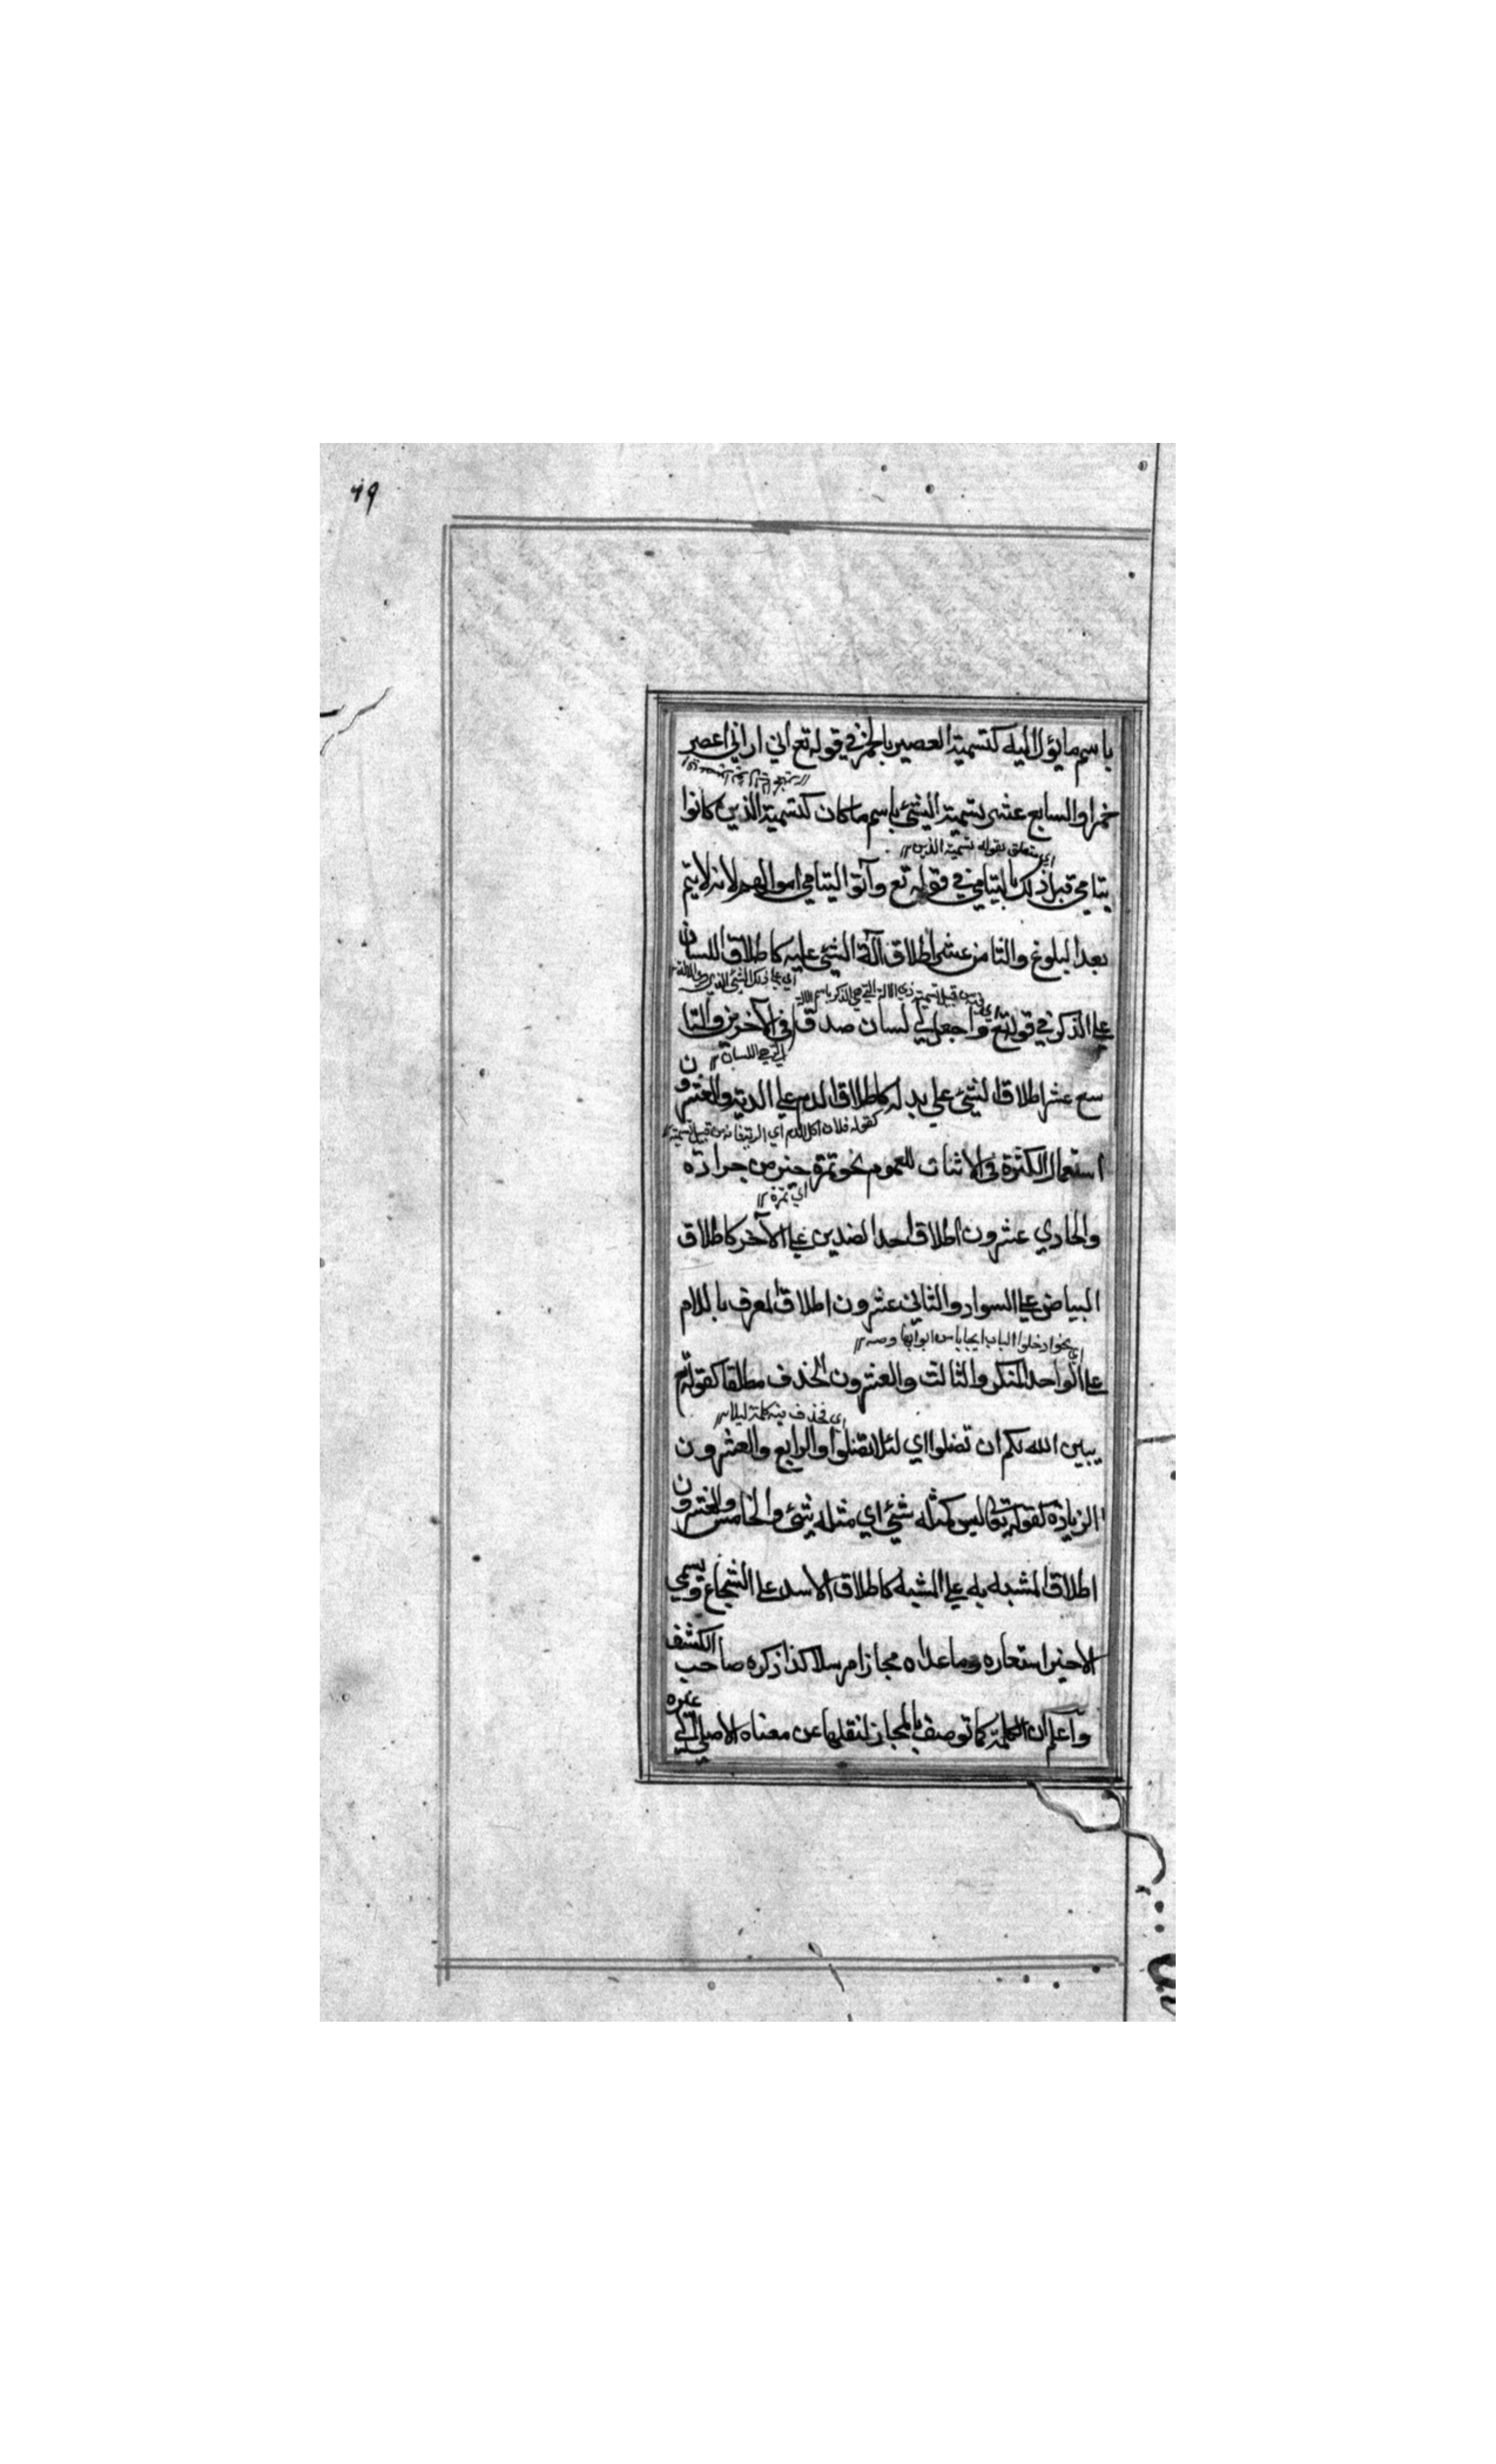 ٦٩
باسم ما يؤل اليه كتسمية العصير بالخمر في قوله تع اني اراني اعصر
خمرا والسابع عشر تسمية الشئ باسم ما كان كتسمية الذين كانوا
اي متعلق بقوله تسمية الذين
يتامى قبل ذلك باليتامي في قوله تع وآتوا اليتامي اموالهم لانه لا يتم
بعد البلوغ والثامن عشر اطلاق آلة الشئ عليه كاطلاق اللسان
علي الذكر في قوله تع واجعل لي لسان صدق في الآخرين والتا
سع عشر اطلاق الشئ علي بدله كاطلاق الدم علي الدية والعشرون
كقوله فلان اكل الدم اي الدية فانه من قبيل تسمية
استعمال النكرة في الاثبات للعموم نحو تمرة خير من جرادة
اي تمرة
والحادي عشرون اطلاق احد الضدين علي الآخر كاطلاق
البياض علي السواد والثاني عشرون اطلاق المعرف باللام
اي نحو ادخلوا الباب اي بابا من ابوابها
علي الواحد المنكر والثالث والعشرون الحذف مطلقا كقوله تع
اي فحذف منه كلمة ليلا
يبين الله لكم ان تضلوا اي لئلا تضلوا والرابع والعشرون
الزيادة كقوله تعالي ليس كمثله شئ اي مثله شئ والخامس والعشرون
اطلاق المشبه به علي المشبه كاطلاق الاسد علي الشجاع ويسمي
الاخير استعاره وما عداه مجازا مرسلا كذا ذكره صاحب الكشف
وآعلم ان الكلمة كما توصف بالمجاز لنقلها عن معناه الاصلي الي غيره